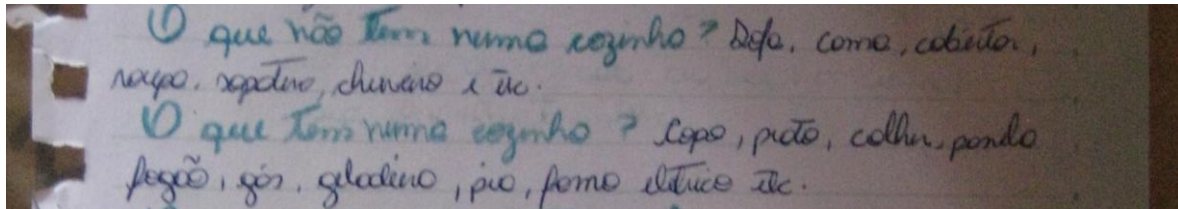 O que não tem numa cozinha? Sofa, cama, cobertor,
roupa, sapateira, chuveiro e etc.
O que tem numa cozinha? Copo, prato, colher, panela
fogão, gás, geladeira, pia, forno elétrico etc.